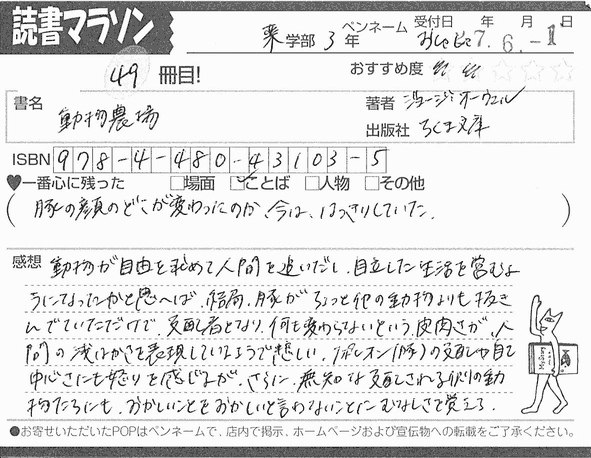 読書マラソン
薬学部 3年 ペンネーム おしゃピコ 受付日 7年 6月 -1日
49冊目! おすすめ度
書名 動物農場
著者 ジョージ・オーウェル
出版社 ちくま文庫
ISBN 978-4-480-43103-5
♥一番心に残った □場面 ☑ことば □人物 □その他
(豚の顔のどこが変わったのか、今は、はっきりしていた。)
感想 動物が自由を求めて人間を追いだし、自立した生活を営むよ
うになったかと思へば、結局、豚がちょっと他の動物よりも抜き
んでていただけで、支配者となり、何も変わらないという皮肉さが、人
間の浅はかさを表現しているようで悲しい。ナポレオン(豚)の支配や自己
中心さにも怒りを感じるが、さらに、無知な支配される側の動
物たちにも、おかしいことをおかしいと言わないことにむなしさを覚える。
●お寄せいただいたPOPはペンネームで、店内で掲示、ホームページおよび宣伝物への転載をご了承ください。